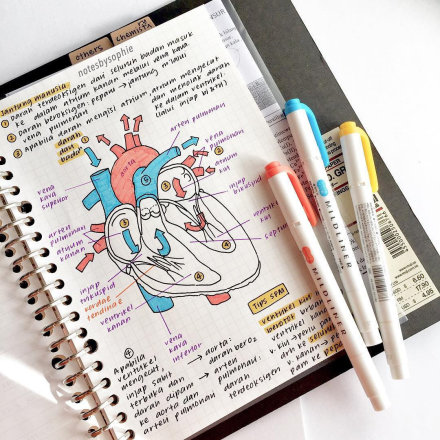 others
chemistry
notesbysophie
Jantung manusia
① Darah terdeoksigen dari seluruh badan masuk
ke dalam atrium kanan melalui vena kava.
② Darah beroksigen: pepan → jantung m'lalui
vena pulmonari
③ apabila darah mengisi atrium, atrium mengecut
dan menolak darah
ke dalam ventrikel
lalui injap
darah
dari
badan
aorta
arteri pulmonari
vena
kava
superior
vena
pulmonari
atrium
kiri
injap
bikuspid
arteri
pulmonari
atrium
kanan
ventrikel
kiri
septum
injap
trikuspid
kordae
tendinae
ventrikel
kanan
vena
kava
inferior
TIPS SPM
ventrikel kiri
berotot
ventrikel kanan
④ Apabila
ventrikel
mengecut,
injap sabit
terbuka dan
darah dipam
ke aorta dan
arteri pulmonari
→ aorta:
darah bero₂
→ arteri
pulmonari:
darah
terdeoksigen
MILDLINER
MILDLINER